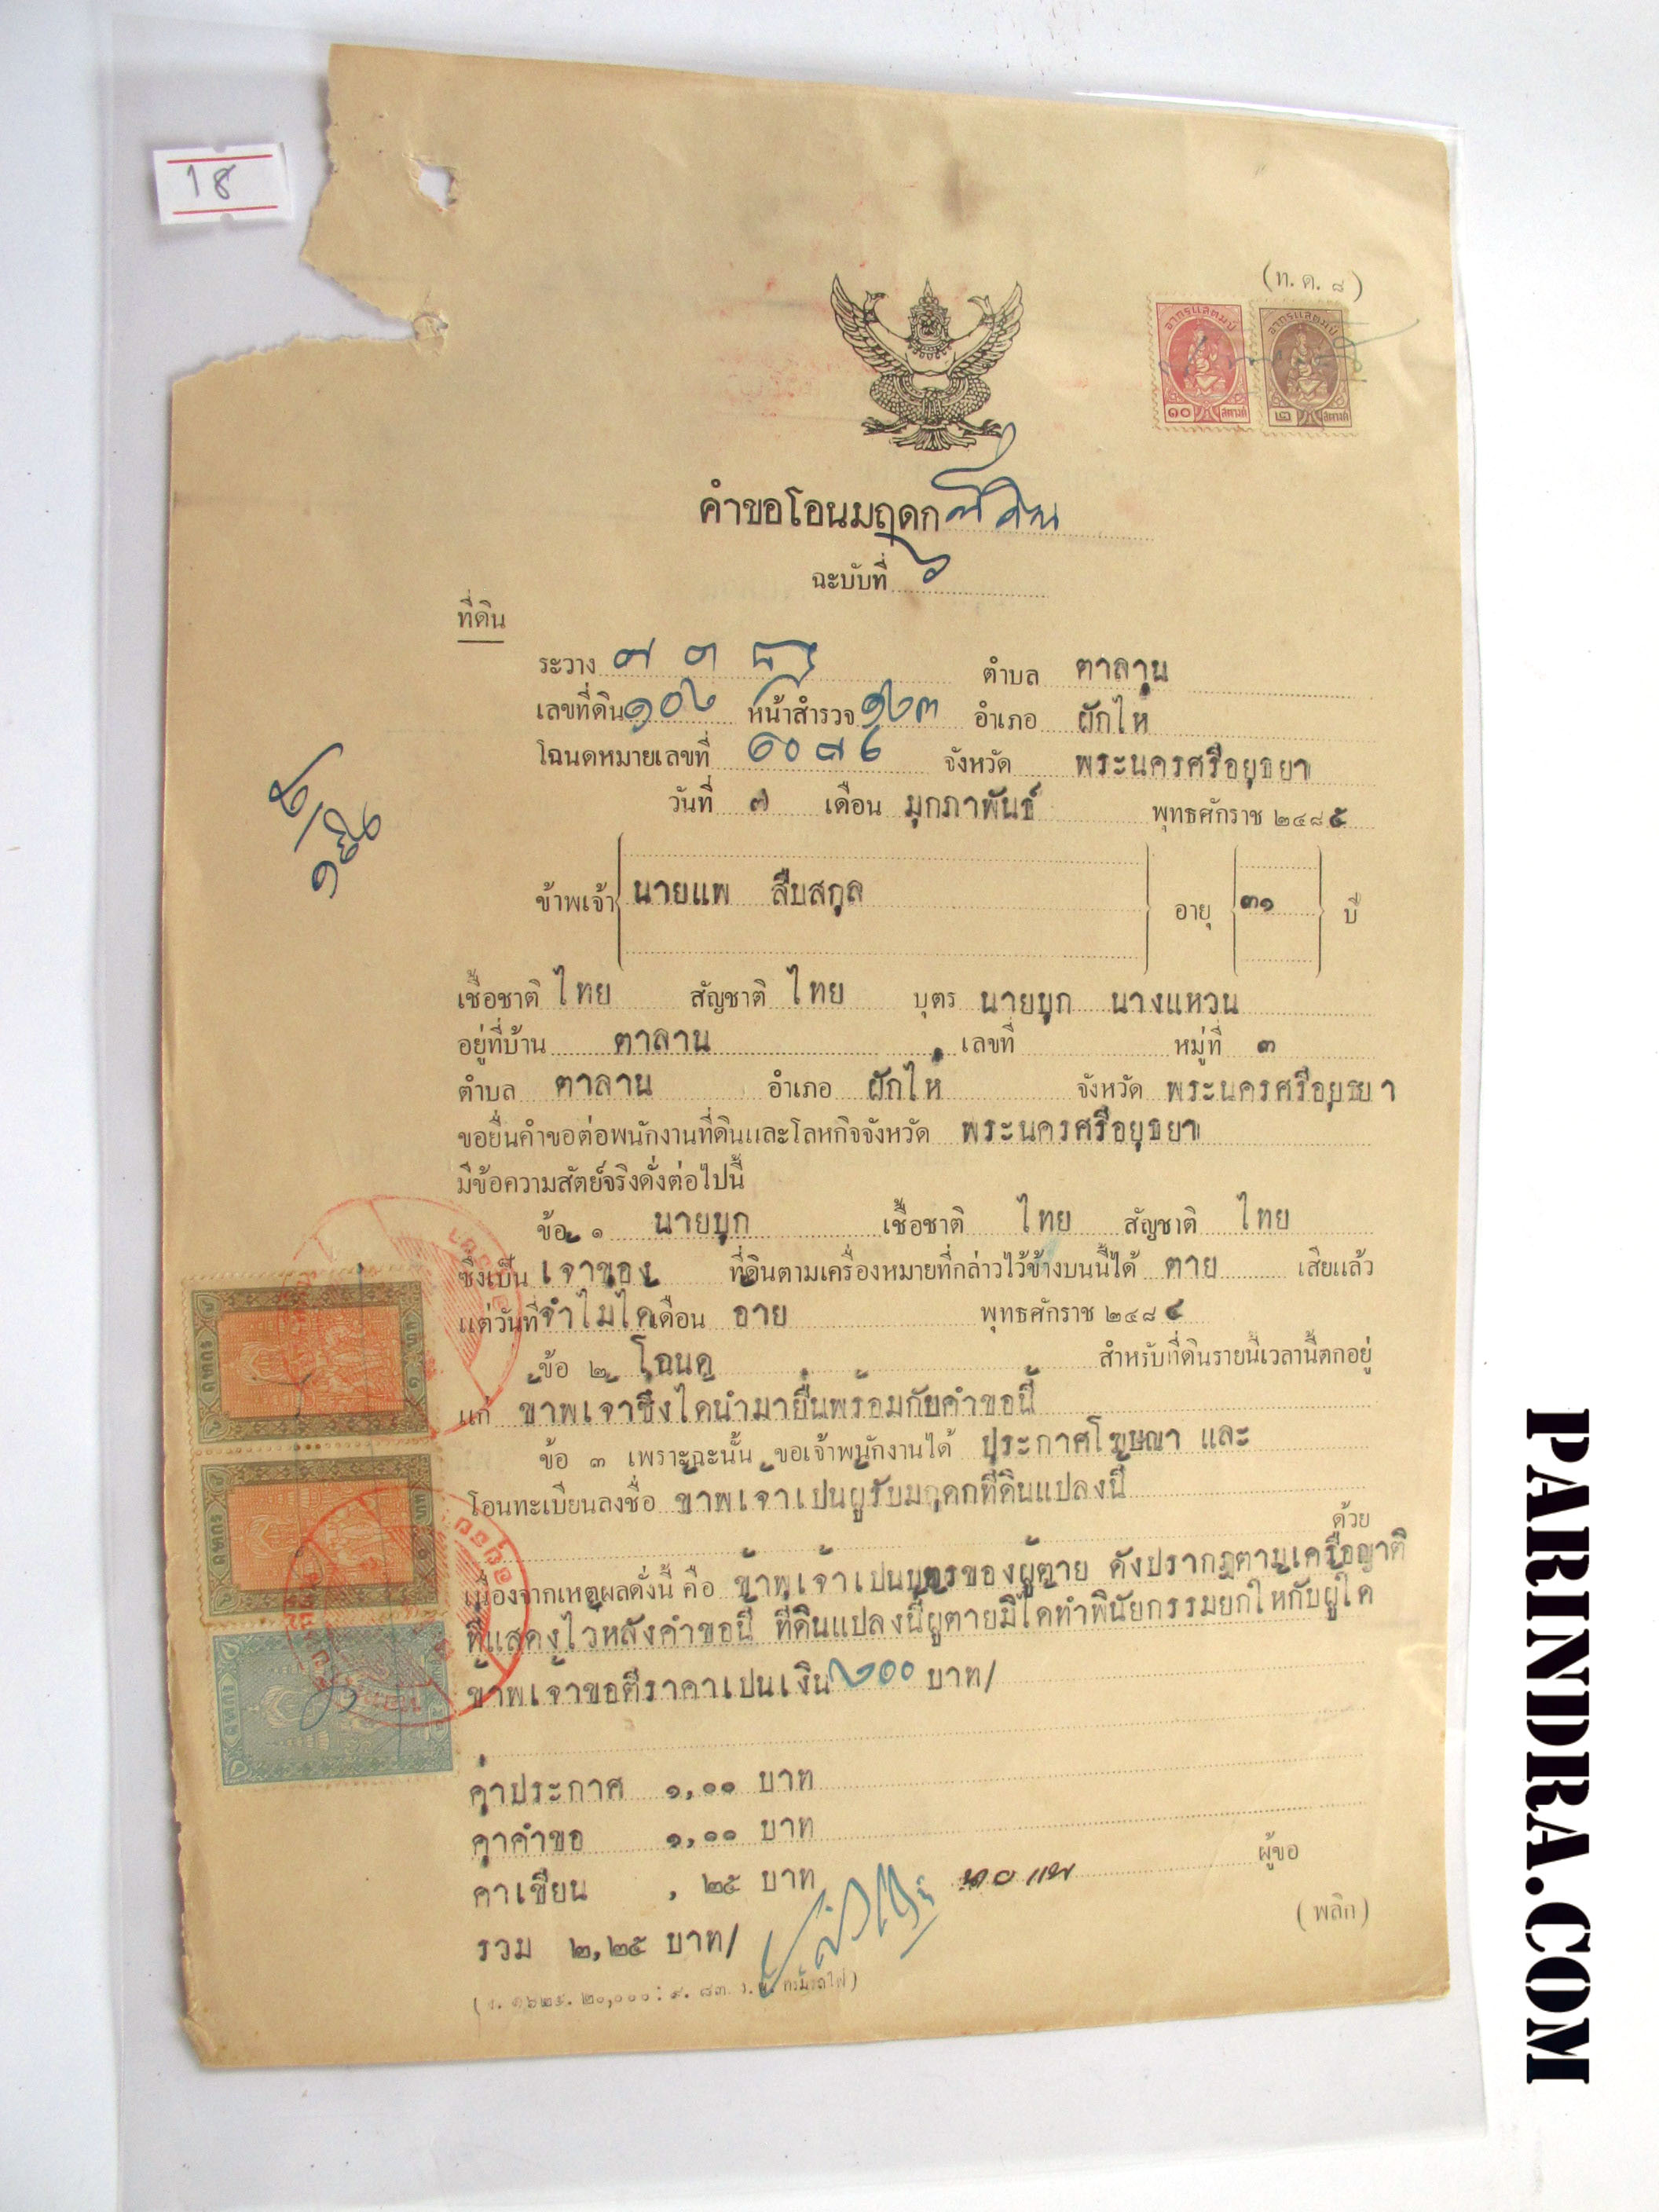 18
(ท. ด. ๘)
อากรแสตมป์
๑๐ สตางค์
อากรแสตมป์
๒ สตางค์
คำขอโอนมฤดก ที่ดิน
ฉะบับที่
ที่ดิน
ระวาง ตำบล ตาลาน
เลขที่ดิน ๑๐๖ หน้าสำรวจ ๑๖๓ อำเภอ ผักไห่
โฉนดหมายเลขที่ จังหวัด พระนครศรีอยุธยา
วันที่ ๗ เดือน มุกภาพันธ์ พุทธศักราช ๒๔๘๕
ข้าพเจ้า นายแพ สืบสกุล อายุ ๓๑ ปี
เชื้อชาติ ไทย สัญชาติ ไทย บุตร นายบุก นางแหวน
อยู่ที่บ้าน ตาลาน เลขที่ หมู่ที่ ๓
ตำบล ตาลาน อำเภอ ผักไห่ จังหวัด พระนครศรีอยุธยา
ขอยื่นคำขอต่อพนักงานที่ดินและโลหกิจจังหวัด พระนครศรีอยุธยา
มีข้อความสัตย์จริงดั่งต่อไปนี้
ข้อ ๑ นายบุก เชื้อชาติ ไทย สัญชาติ ไทย
ซึ่งเป็น เจ้าของ ที่ดินตามเครื่องหมายที่กล่าวไว้ข้างบนนี้ได้ ตาย เสียแล้ว
แต่วันที่ จำไม่ได้ เดือน อ้าย พุทธศักราช ๒๔๘๔
ข้อ ๒ โฉนด สำหรับที่ดินรายนี้เวลานี้ตกอยู่
แก่ ข้าพเจ้าซึ่งได้นำมายื่นพร้อมกับคำขอนี้
ข้อ ๓ เพราะฉะนั้น ขอเจ้าพนักงานได้ ประกาศโฆษณา และ
โอนทะเบียนลงชื่อ ข้าพเจ้าเปนผู้รับมฤดกที่ดินแปลงนี้
ด้วย
เนื่องจากเหตุผลดั่งนี้ คือ ข้าพเจ้าเปนบุตรของผู้ตาย ดังปรากฎตามเครือญาติ
ที่แสดงไว้หลังคำขอนี้ ที่ดินแปลงนี้ผู้ตายมิได้ทำพินัยกรรมยกให้กับผู้ใด
ข้าพเจ้าขอตีราคาเปนเงิน ๒๐๐ บาท/
ค่าประกาศ ๑,๐๐ บาท
ค่าคำขอ ๑,๐๐ บาท
ค่าเขียน ,๒๕ บาท
รวม ๒,๒๕ บาท/
ผู้ขอ
(พลิก)
PARINDRA.COM